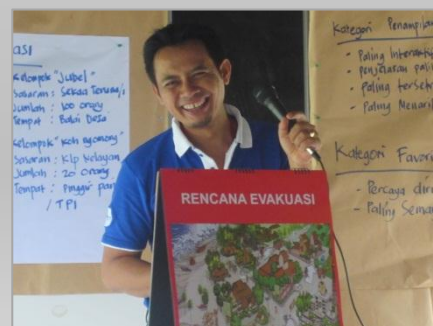 asi
Kelompok "Jubel"
Sasaran : Sekaa Teruna/i
Jumlah : 100 orang
Tempat : Balai Desa
Kelompok "Koh ngomong"
Sasaran : Klp Nelayan
Jumlah : 20 orang
Tempat : Pinggir pan
/ TPI
RENCANA EVAKUASI
Kategori Penampilan
- Paling Interaktif
- Penjelasan pali
- Paling terse
- Paling Menari
Kategori Favori
- Percaya diri
- Paling Seman